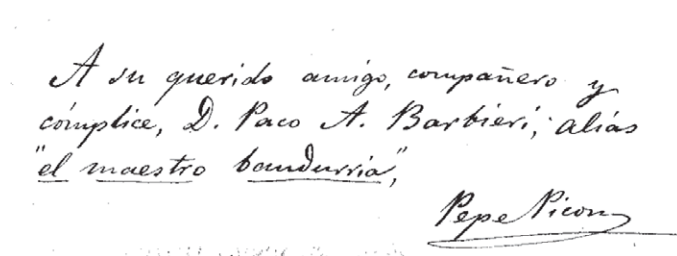 A su querido amigo, compañero y
cómplice, D. Paco A. Barbieri, aliás
"el maestro bandurria",
Pepe Picon